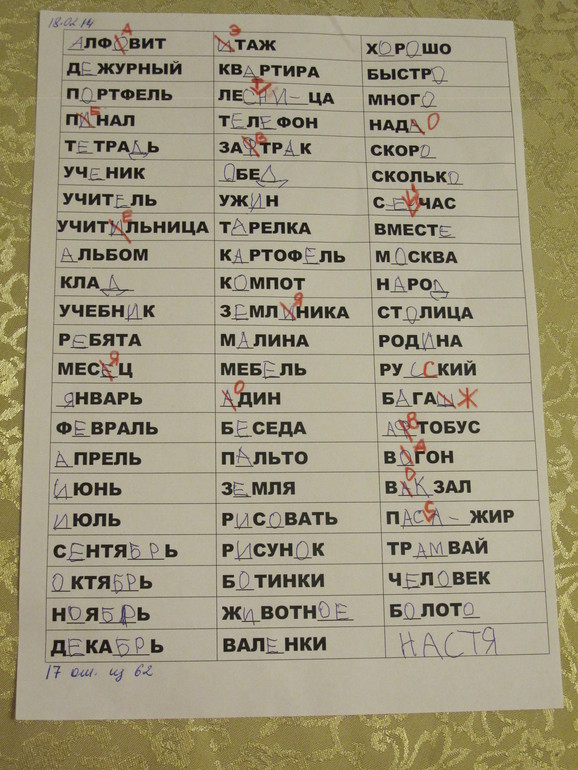 18.02.14
АЛФАВИТ ЭТАЖ ХОРОШО
ДЕЖУРНЫЙ КВАРТИРА БЫСТРО
ПОРТФЕЛЬ ЛЕСТНИ-ЦА МНОГО
ПЕНАЛ ТЕЛЕФОН НАДО
ТЕТРАДЬ ЗАВТРАК СКОРО
УЧЕНИК ОБЕД СКОЛЬКО
УЧИТЕЛЬ УЖИН СЕЙЧАС
УЧИТЕЛЬНИЦА ТАРЕЛКА ВМЕСТЕ
АЛЬБОМ КАРТОФЕЛЬ МОСКВА
КЛАД КОМПОТ НАРОД
УЧЕБНИК ЗЕМЛЯНИКА СТОЛИЦА
РЕБЯТА МАЛИНА РОДИНА
МЕСЯЦ МЕБЕЛЬ РУССКИЙ
ЯНВАРЬ ОДИН БАГАЖ
ФЕВРАЛЬ БЕСЕДА АВТОБУС
АПРЕЛЬ ПАЛЬТО ВАГОН
ИЮНЬ ЗЕМЛЯ ВОКЗАЛ
ИЮЛЬ РИСОВАТЬ ПАССА-ЖИР
СЕНТЯБРЬ РИСУНОК ТРАМВАЙ
ОКТЯБРЬ БОТИНКИ ЧЕЛОВЕК
НОЯБРЬ ЖИВОТНОЕ БОЛОТО
ДЕКАБРЬ ВАЛЕНКИ НАСТЯ
17 ош. из 62